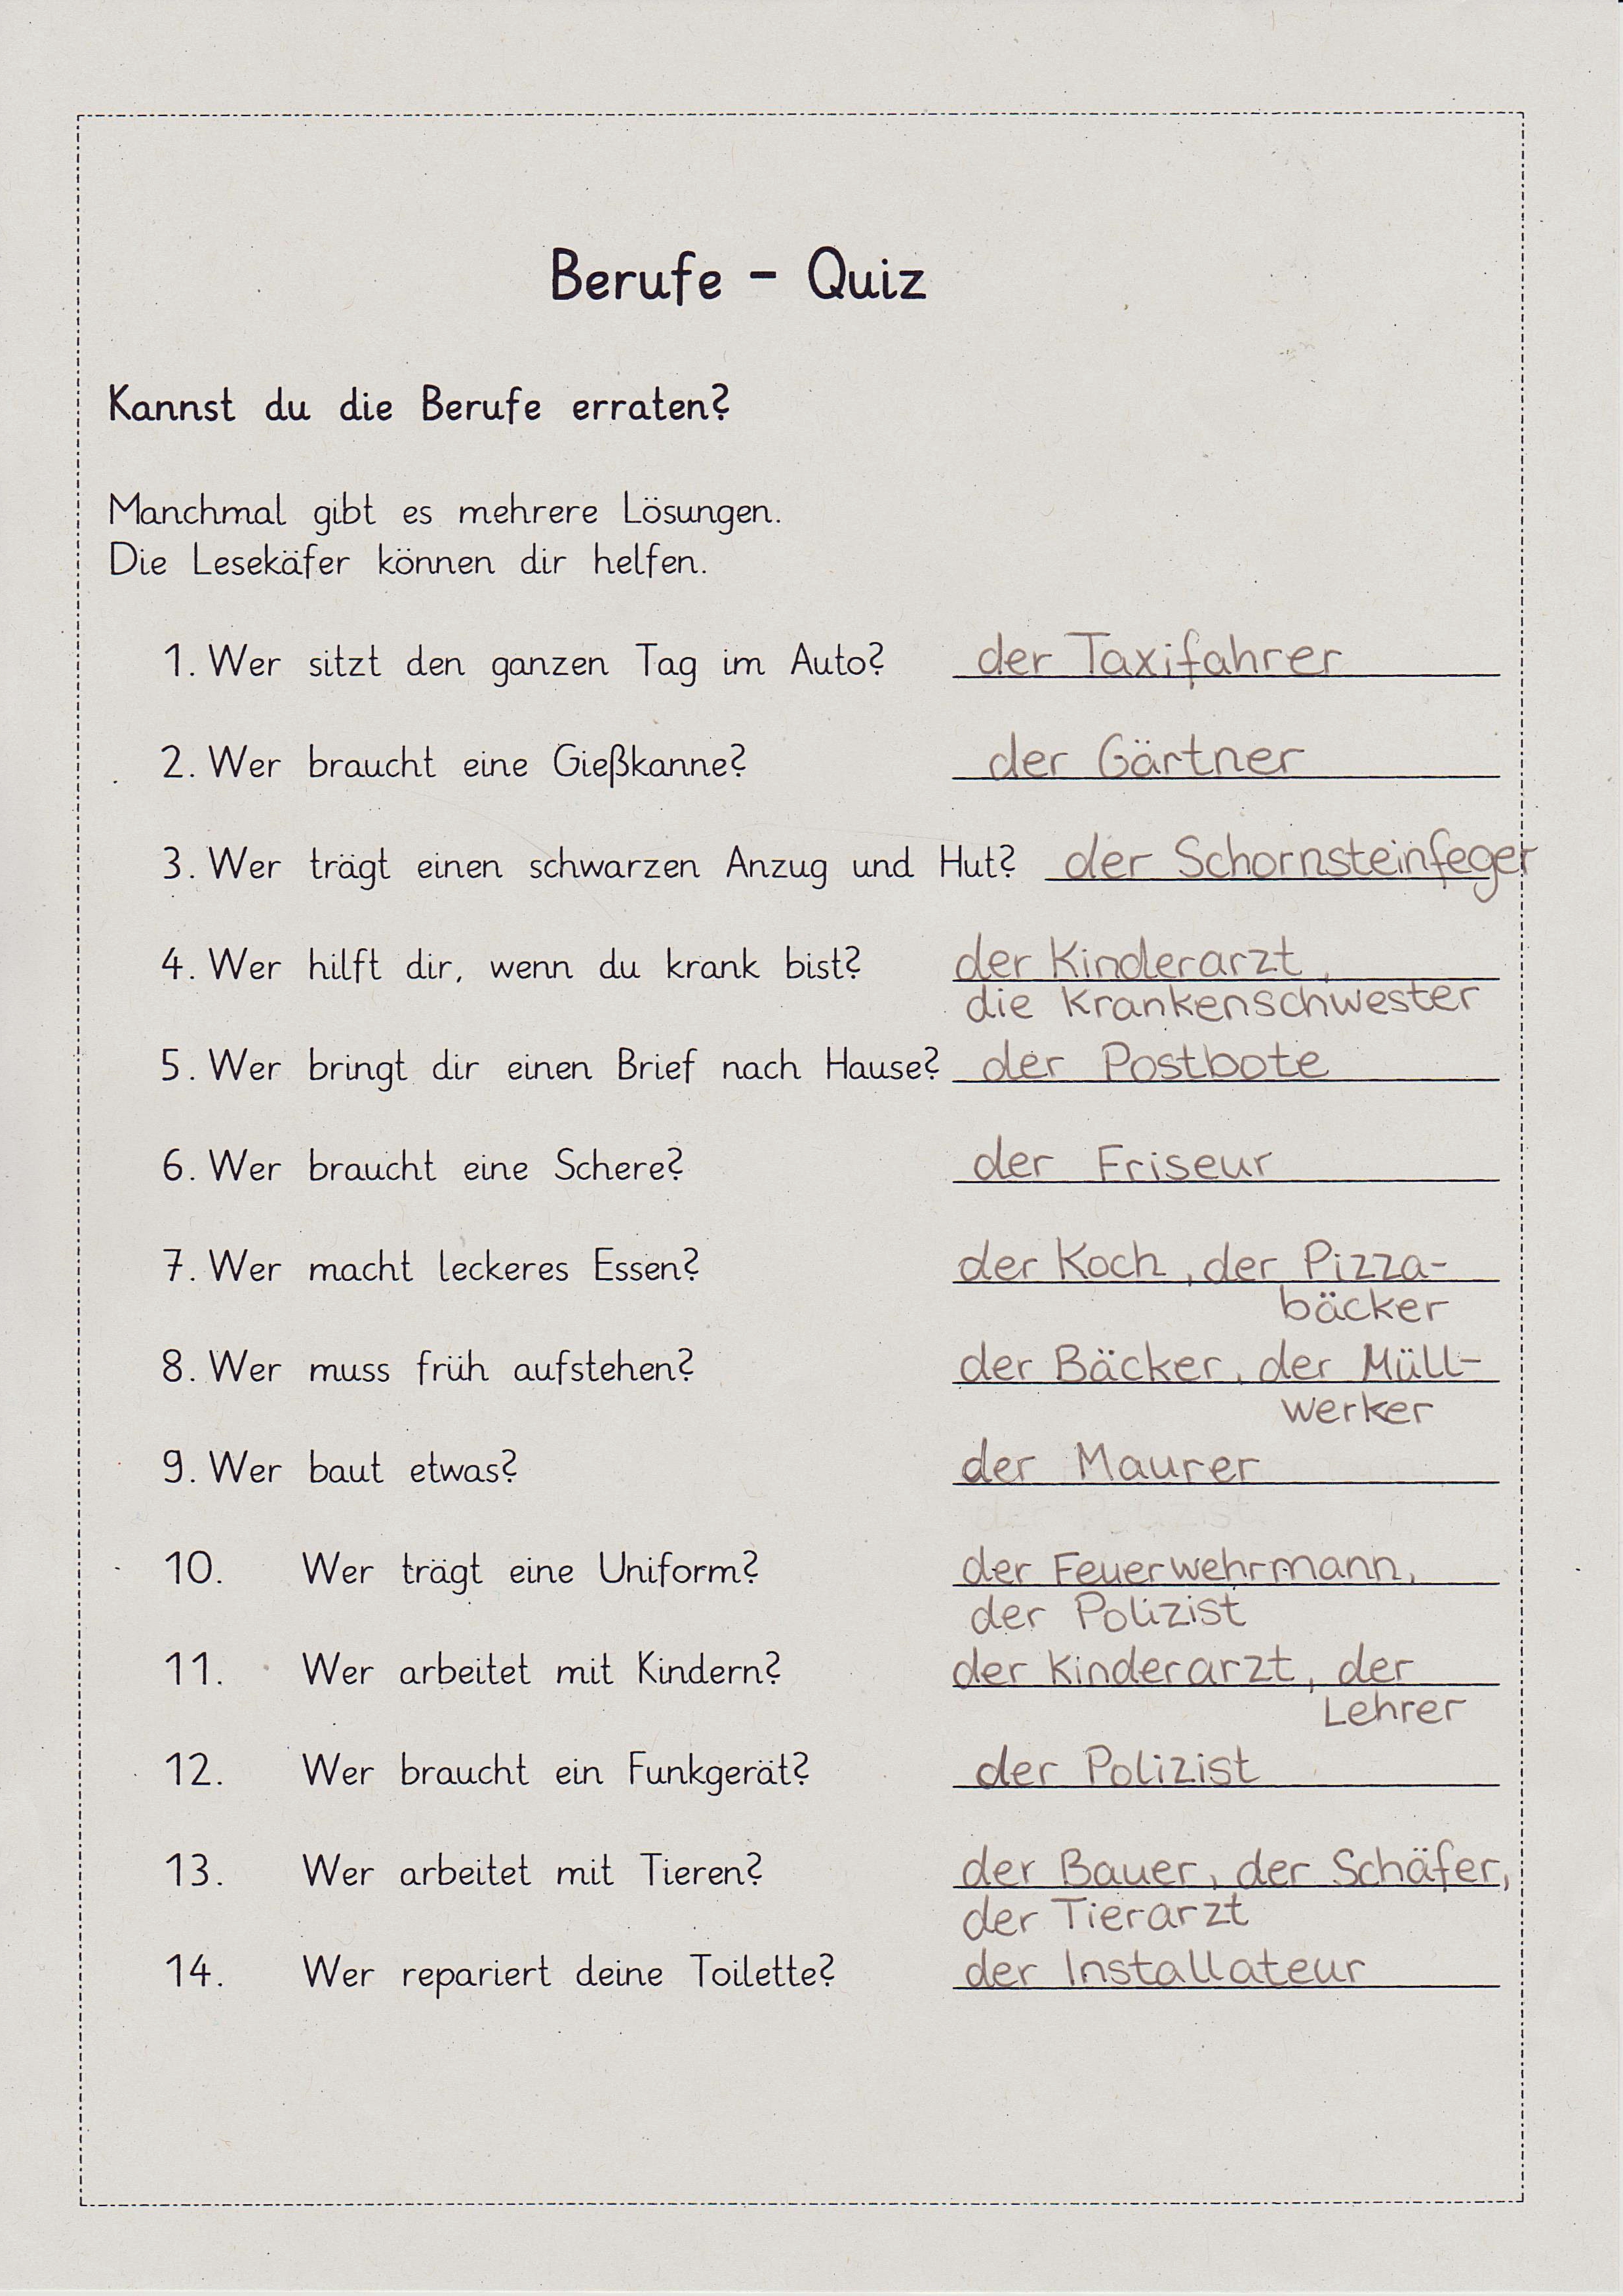 Berufe - Quiz
Kannst du die Berufe erraten?
Manchmal gibt es mehrere Lösungen.
Die Lesekäfer können dir helfen.
1. Wer sitzt den ganzen Tag im Auto? der Taxifahrer
2. Wer braucht eine Gießkanne? der Gärtner
3. Wer trägt einen schwarzen Anzug und Hut? der Schornsteinfeger
4. Wer hilft dir, wenn du krank bist? der Kinderarzt,
die Krankenschwester
5. Wer bringt dir einen Brief nach Hause? der Postbote
6. Wer braucht eine Schere? der Friseur
7. Wer macht leckeres Essen? der Koch, der Pizza-
bäcker
8. Wer muss früh aufstehen? der Bäcker, der Müll-
werker
9. Wer baut etwas? der Maurer
10. Wer trägt eine Uniform? der Feuerwehrmann,
der Polizist
11. Wer arbeitet mit Kindern? der Kinderarzt, der
Lehrer
12. Wer braucht ein Funkgerät? der Polizist
13. Wer arbeitet mit Tieren? der Bauer, der Schäfer,
der Tierarzt
14. Wer repariert deine Toilette? der Installateur